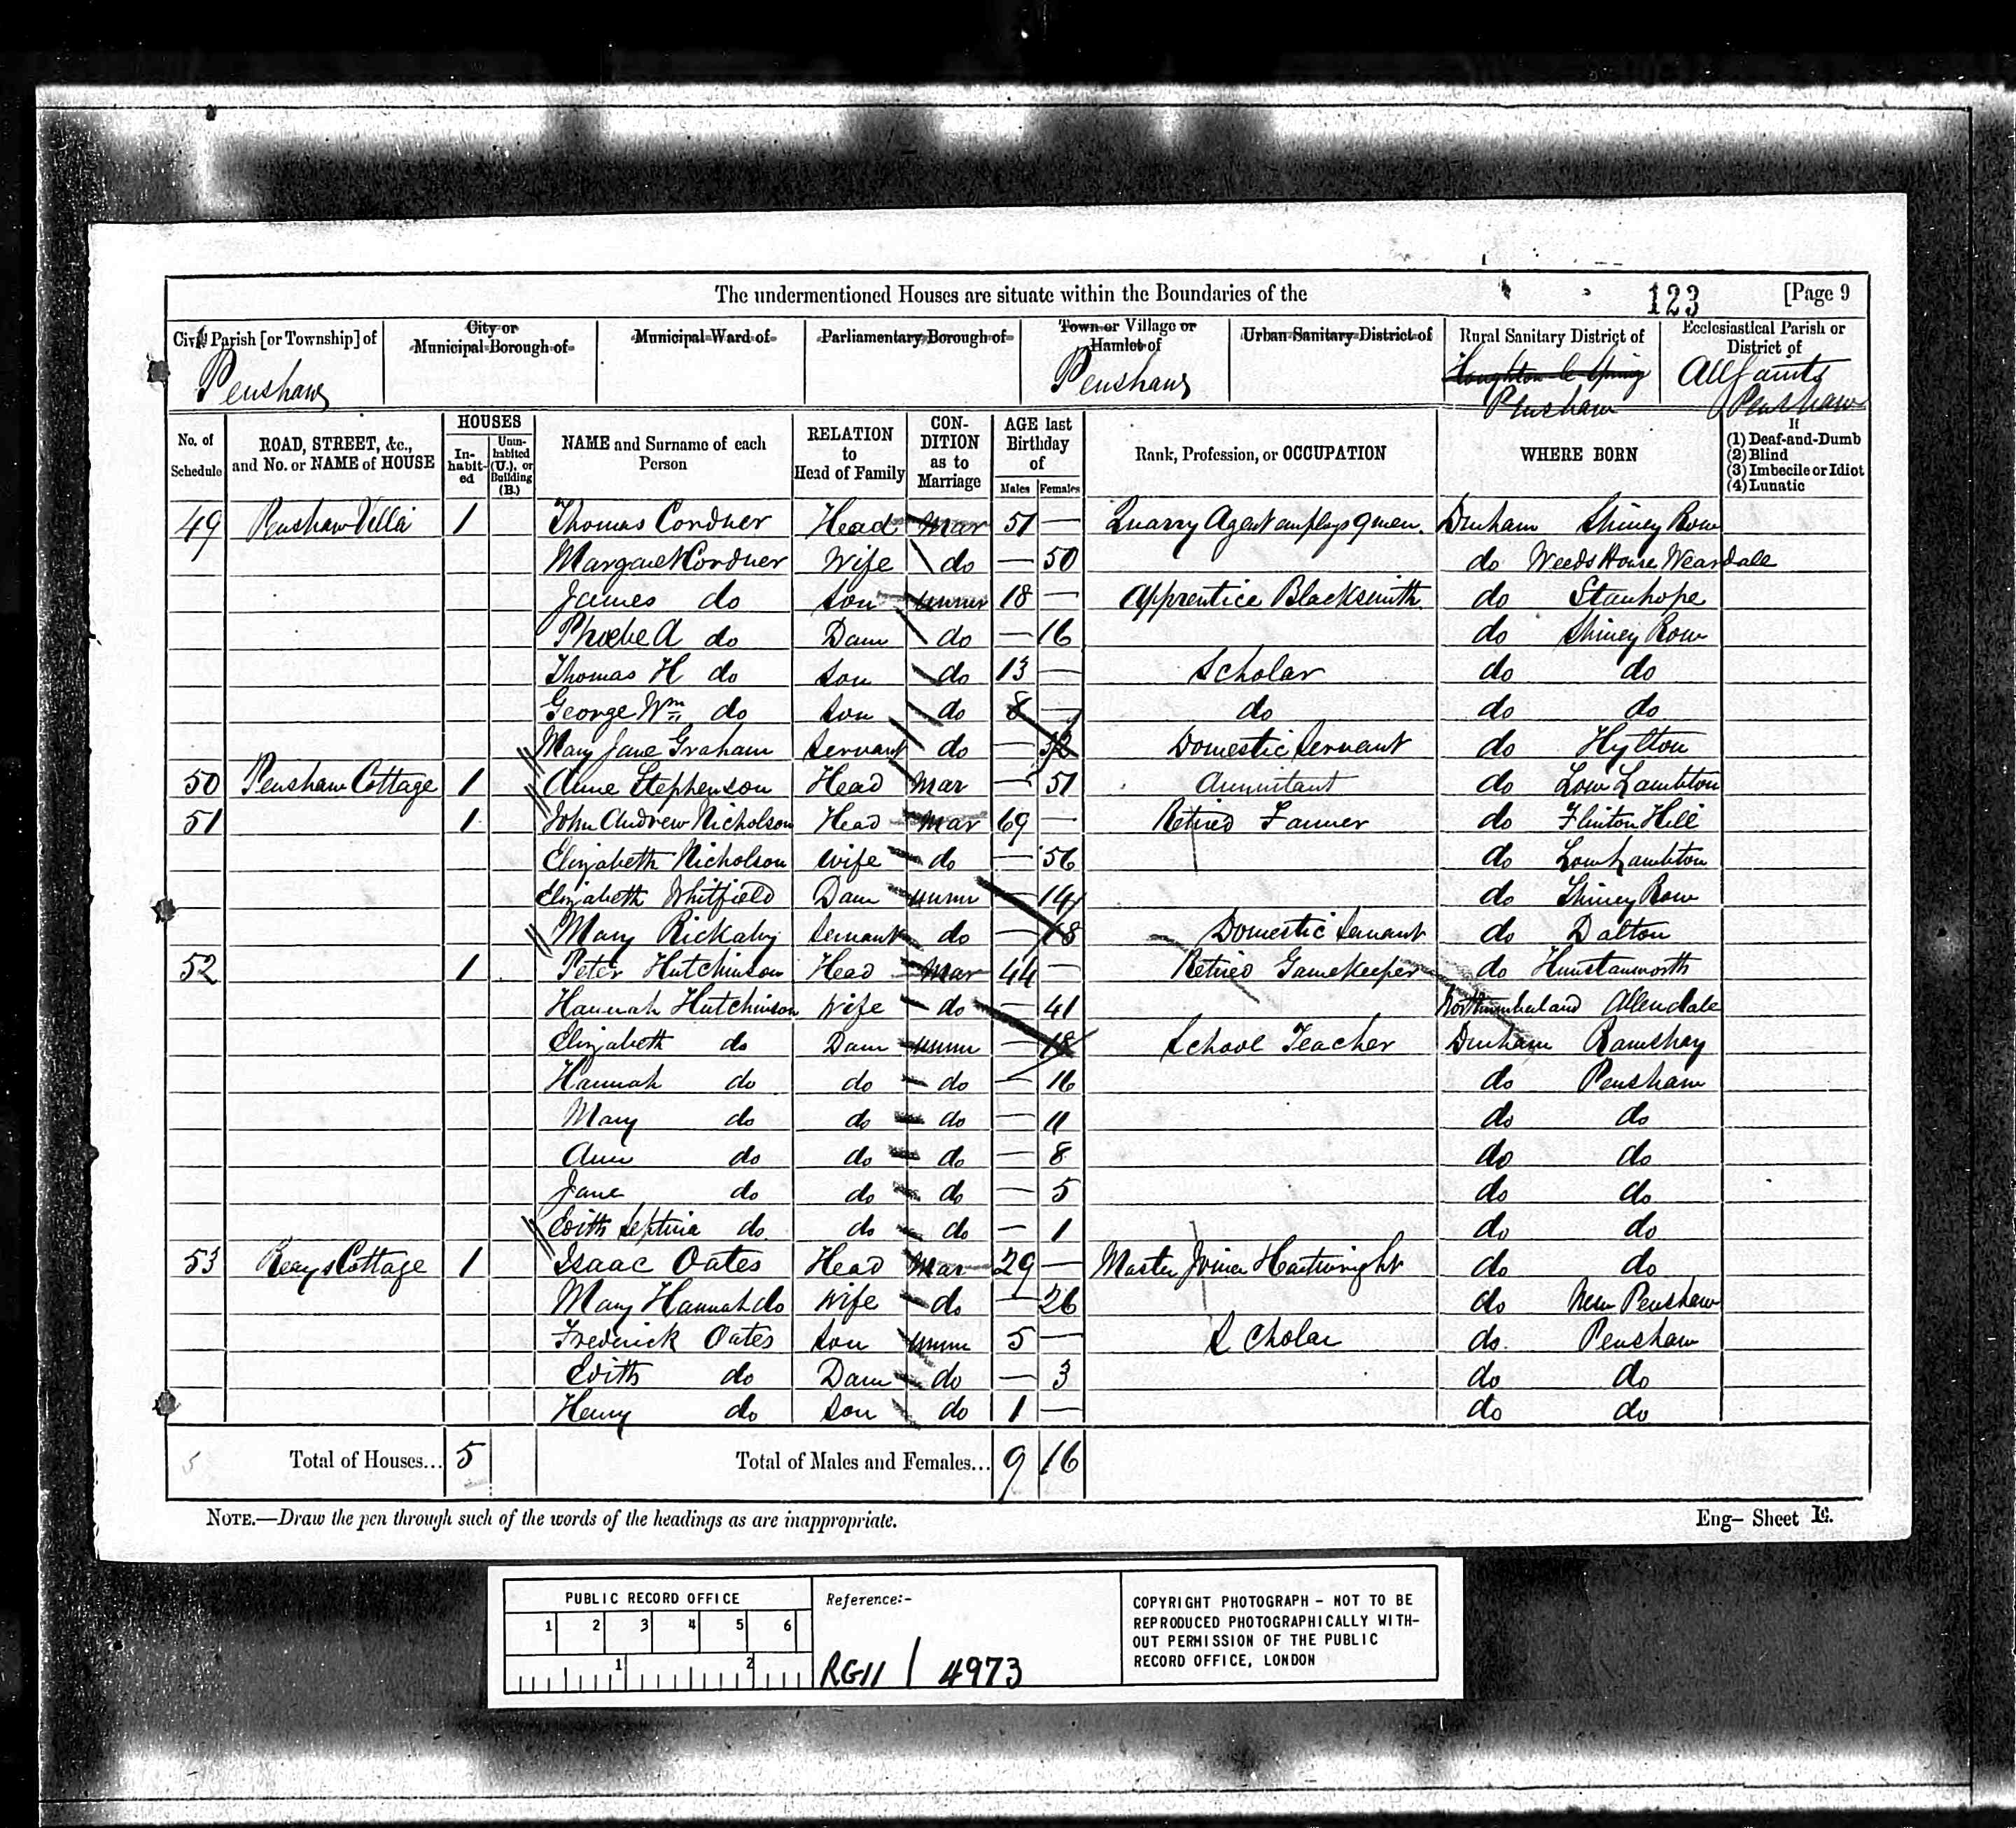 The undermentioned Houses are situate within the Boundaries of the 123 [Page 9
Civil Parish [or Township] of
Penshaw
City or Municipal Borough of
Municipal Ward of
Parliamentary Borough of
Town or Village or Hamlet of
Penshaw
Urban Sanitary District of
Rural Sanitary District of
Houghton le Spring
Penshaw
Ecclesiastical Parish or District of
All Saints
Penshaw
No. of Schedule
ROAD, STREET, &c., and No. or NAME of HOUSE
HOUSES
In-habit-ed
Unin-habited (U.), or Building (B.)
NAME and Surname of each Person
RELATION to Head of Family
CON-DITION as to Marriage
AGE last Birthday of
Males Females
Rank, Profession, or OCCUPATION
WHERE BORN
If
(1) Deaf-and-Dumb
(2) Blind
(3) Imbecile or Idiot
(4) Lunatic
49 Penshaw Villa 1 Thomas Cordner Head Mar 51 — Quarry Agent employs 9 men. Durham Shiney Row
Margaret Cordner Wife do — 50 do Weeds House Weardale
James do Son unmr 18 — Apprentice Blacksmith do Stanhope
Phoebe A do Daur do — 16 do Shiney Row
Thomas H do Son do 13 — Scholar do do
George Wm do Son do 8 — do do do
Mary Jane Graham Servant do — Domestic Servant do Hylton
50 Penshaw Cottage 1 Anne Stephenson Head Mar — 51 Annuitant do Low Lambton
51 1 John Andrew Nicholson Head Mar 69 — Retired Farmer do Flinton Hill
Elizabeth Nicholson Wife do — 56 do Low Lambton
Elizabeth Whitfield Daur unmr — 14 do Shiney Row
Mary Rickaby Servant do — 18 Domestic Servant do Dalton
52 1 Peter Hutchinson Head Mar 44 — Retired Gamekeeper do Hunstanworth
Hannah Hutchinson Wife do — 41 Northumberland Allendale
Elizabeth do Daur unmr — 18 School Teacher Durham Ramshay
Hannah do do do — 16 do Penshaw
Mary do do do — 11 do do
Ann do do do — 8 do do
Jane do do do — 5 do do
Edith Septina do do do — 1 do do
53 Reays Cottage 1 Isaac Oates Head Mar 29 — Master Joiner Hartwright do do
Mary Hannah do Wife do — 26 do New Penshaw
Frederick Oates Son unmr 5 — Scholar do Penshaw
Edith do Daur do — 3 do do
Henry do Son do 1 — do do
5 Total of Houses... 5 Total of Males and Females... 9 16
NOTE.—Draw the pen through such of the words of the headings as are inappropriate.
Eng- Sheet
PUBLIC RECORD OFFICE
1 2 3 4 5 6
1 2
Reference:-
RG11 / 4973
COPYRIGHT PHOTOGRAPH - NOT TO BE
REPRODUCED PHOTOGRAPHICALLY WITH-
OUT PERMISSION OF THE PUBLIC
RECORD OFFICE, LONDON